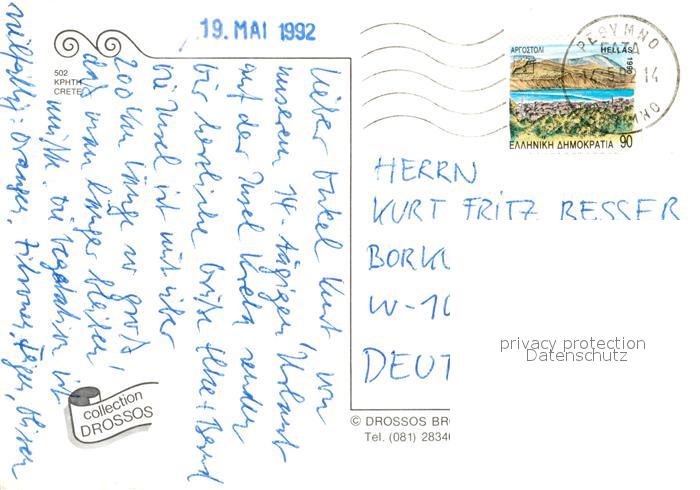 19. MAI 1992
502
ΚΡΗΤΗ
CRETE
Lieber Onkel Kurt, von
unserem 14-tägigen Urlaub
auf der Insel Kreta senden
wir herzliche Grüße Elke + Bernd
Die Insel ist mit über
200 km Länge so groß,
daß man länger bleiben
müßte. Die Vegetation ist
vielfältig: Orangen, Zitronen, Feigen, Oliven
collection
DROSSOS
ΑΡΓΟΣΤΟΛΙ HELLAS
1990
ΕΛΛΗΝΙΚΗ ΔΗΜΟΚΡΑΤΙΑ 90
ΡΕΘΥΜΝΟ
14
HERRN
KURT FRITZ BESSER
BORKU
W-10
DEUT
privacy protection
Datenschutz
© DROSSOS BR
Tel. (081) 2834